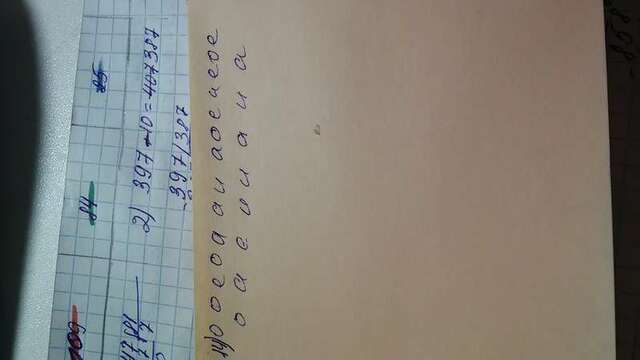 109 84 85
2) 397-10=407387
397/387
14) о о е о а а и а о е и е о е
о а е и и а и а
858